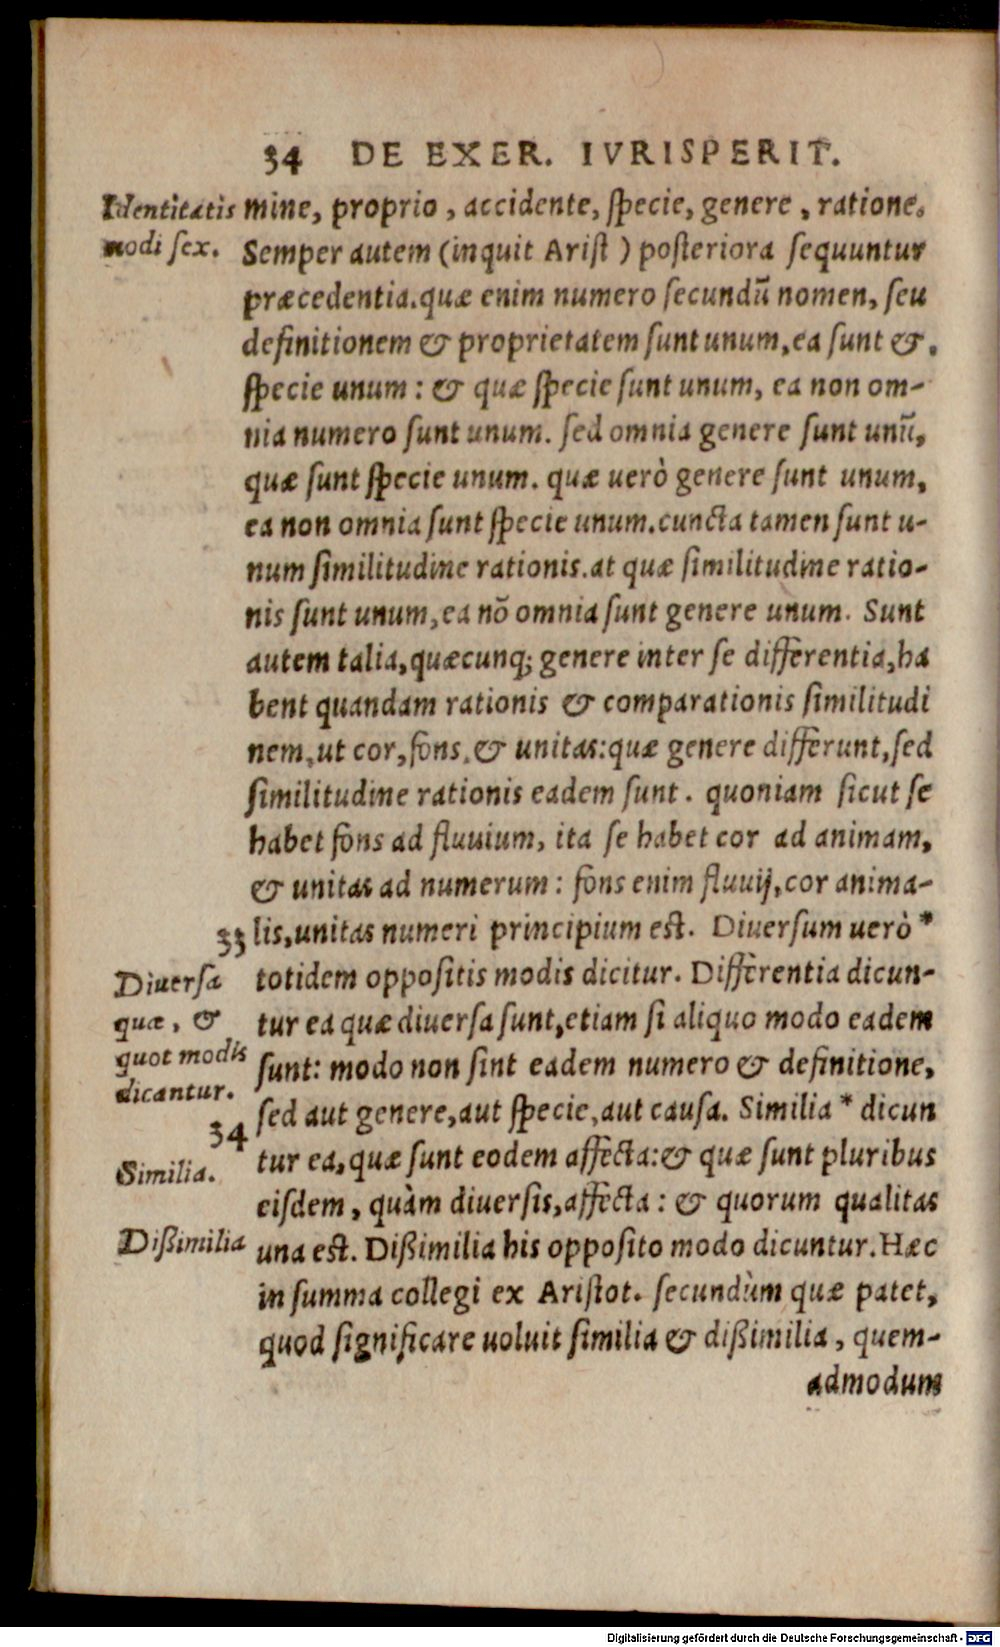 34 DE EXER. IVRISPERIT.
Identitatis
modi sex.
mine, proprio, accidente, specie, genere, ratione.
Semper autem (inquit Arist) posteriora sequuntur
præcedentia. quæ enim numero secundũ nomen, seu
definitionem & proprietatem sunt unum, ea sunt &.
specie unum: & quæ specie sunt unum, ea non om-
nia numero sunt unum. sed omnia genere sunt unũ,
quæ sunt specie unum. quæ uerò genere sunt unum,
ea non omnia sunt specie unum. cuncta tamen sunt u-
num similitudine rationis. at quæ similitudine ratio-
nis sunt unum, ea nõ omnia sunt genere unum. Sunt
autem talia, quæcunq; genere inter se differentia, ha
bent quandam rationis & comparationis similitudi
nem, ut cor, fons, & unitas: quæ genere differunt, sed
similitudine rationis eadem sunt. quoniam sicut se
habet fons ad fluuium, ita se habet cor ad animam,
& unitas ad numerum: fons enim fluuij, cor anima-
33 lis, unitas numeri principium est. Diuersum uerò *
Diuersa
quæ, &
quot modis
dicantur.
totidem oppositis modis dicitur. Differentia dicun-
tur ea quæ diuersa sunt, etiam si aliquo modo eadem
sunt: modo non sint eadem numero & definitione,
sed aut genere, aut specie, aut causa. Similia * dicun
34
Similia.
tur ea, quæ sunt eodem affecta: & quæ sunt pluribus
eisdem, quàm diuersis, affecta: & quorum qualitas
Dißimilia
una est. Dißimilia his opposito modo dicuntur. Hæc
in summa collegi ex Aristot. secundùm quæ patet,
quod significare uoluit similia & dißimilia, quem-
admodum
Digitalisierung gefördert durch die Deutsche Forschungsgemeinschaft - DFG